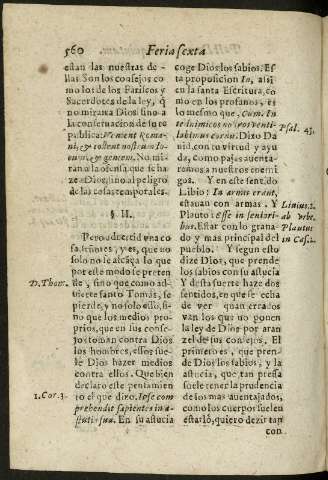 560
Feria sexta
estan las nuestras de-
llas. Son los consejos co
mo los de los Fariseos y
Sacerdotes de la ley, q̃
no miran a Dios sino a
la conseruacion de su re
publica: Venient Roma-
ni, & tollent nostrum lo-
cum, & gentem. No mi-
ran a la ofensa que se ha
ze a Dios, sino al peligro
de las cosas temporales.
§. II.
Pero aduertid vna co
sa,
y es, que no
solo no se alcãça lo que
por este modo se preten
de, sino que como ad-
uierte santo Tomás, se
D. Thom.
pierde, y no solo esso, si-
no que los medios pro-
prios, que en sus conse-
jos toman contra Dios
los hombres, essos sue-
le Dios hazer medios
contra ellos. Que bien
declaro este pensamien
to el que dixo. Ipse com
1. Cor. 3.
prehendit sapientes in a-
stutia sua. En su astucia
coge Dios los sabios. Es
ta proposicion In, assi
en la santa Escritura, co
mo en los profanos, es
lo mesmo que, Cum. In
te inimicos nostros venti-
labimus cornu. Dixo Da
Psal. 43.
uid, con tu virtud y ayu
da, como pajas auenta-
remos a nuestros enemi
gos. Y en este sentido
Libio: In armis erant,
estauan con armas. Y
Liuius. 2.
Plauto: Esse in senlari-
ab vrbe.
bus. Estar con lo grana-
Plautus
do y mas principal del
in Cas. 2.
pueblo. Y segun esto
dize Dios, que prende
los sabios con su astucia
Y desta suerte haze dos
sentidos, en que se echa
de ver quan errados
van los que no ponen
la ley de Dios por aran
zel de sus consejos. El
primero es, que pren-
de Dios los sabios, y la
astucia, que tan pressa
suele tener la prudencia
de los mas auentajados,
como los cuerpos suelen
estarlo, quiero dezir tan
con